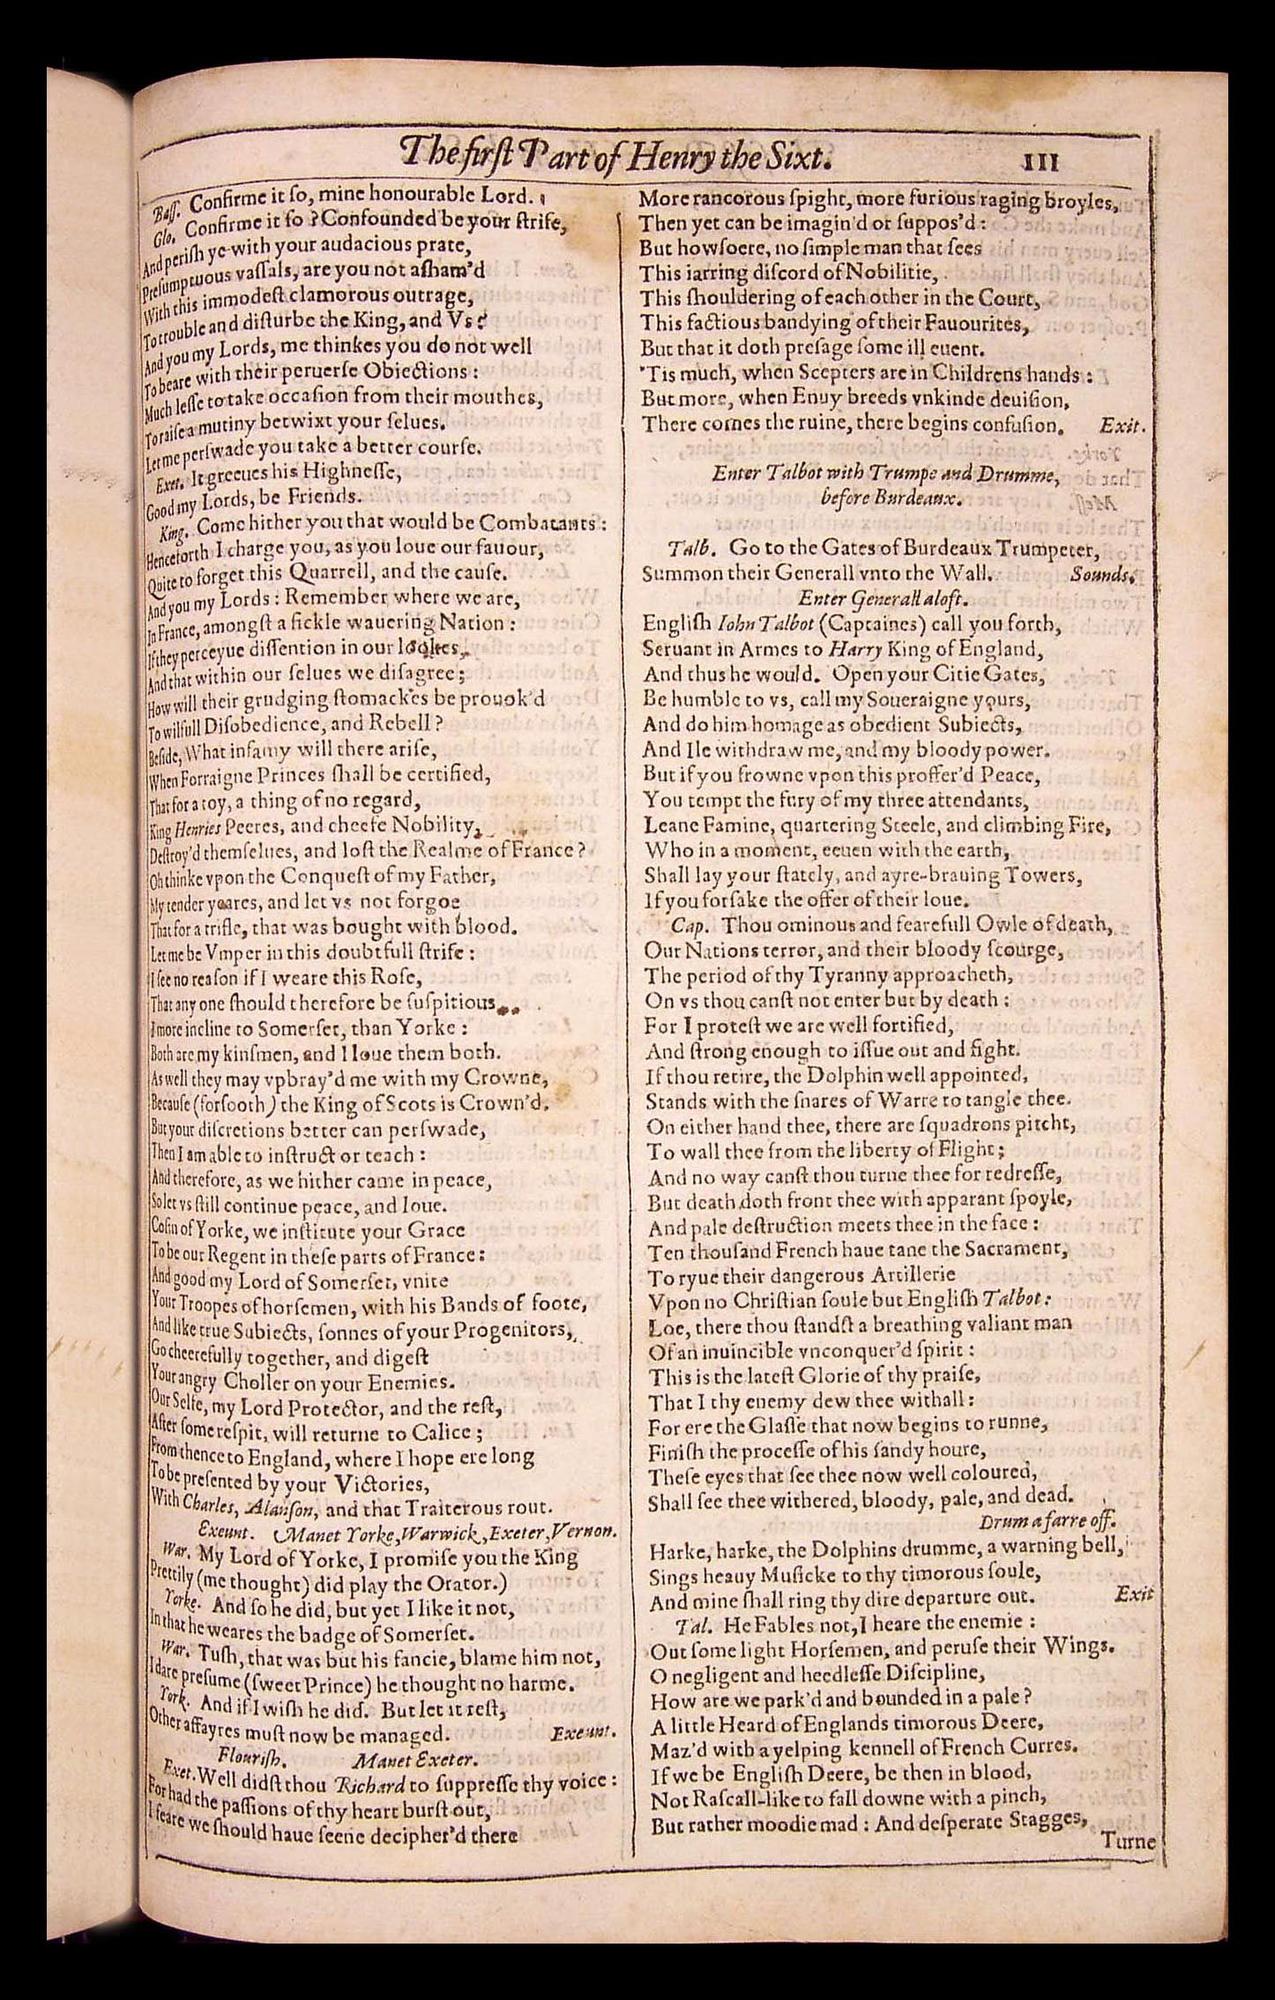 The first Part of Henry the Sixt. 111
Bass. Confirme it so, mine honourable Lord.
Glo. Confirme it so? Confounded be your strife,
And perish ye with your audacious prate,
Presumptuous vassals, are you not asham'd
With this immodest clamorous outrage,
To trouble and disturbe the King, and Vs?
And you my Lords, me thinkes you do not well
To beare with their peruerse Obiections:
Much lesse to take occasion from their mouthes,
To raise a mutiny betwixt your selues.
Let me perswade you take a better course.
Exet. It greeues his Highnesse,
Good my Lords, be Friends.
King. Come hither you that would be Combatants:
Henceforth I charge you, as you loue our fauour,
Quite to forget this Quarrell, and the cause.
And you my Lords: Remember where we are,
In France, amongst a fickle wauering Nation:
If they perceyue dissention in our lookes,
And that within our selues we disagree;
How will their grudging stomackes be prouok'd
To wilfull Disobedience, and Rebell?
Beside, What infamy will there arise,
When Forraigne Princes shall be certified,
That for a toy, a thing of no regard,
King Henries Peeres, and cheefe Nobility,
Destroy'd themselues, and lost the Realme of France?
Oh thinke vpon the Conquest of my Father,
My tender yeares, and let vs not forgoe
That for a trifle, that was bought with blood.
Let me be Vmper in this doubtfull strife:
I see no reason if I weare this Rose,
That any one should therefore be suspitious
I more incline to Somerset, than Yorke:
Both are my kinsmen, and I loue them both.
As well they may vpbray'd me with my Crowne,
Because (forsooth) the King of Scots is Crown'd.
But your discretions better can perswade,
Then I am able to instruct or teach:
And therefore, as we hither came in peace,
So let vs still continue peace, and loue.
Cosin of Yorke, we institute your Grace
To be our Regent in these parts of France:
And good my Lord of Somerset, vnite
Your Troopes of horsemen, with his Bands of foote,
And like true Subiects, sonnes of your Progenitors,
Go cheerefully together, and digest
Your angry Choller on your Enemies.
Our Selfe, my Lord Protector, and the rest,
After some respit, will returne to Calice;
From thence to England, where I hope ere long
To be presented by your Victories,
With Charles, Alanson, and that Traiterous rout.
Exeunt. Manet Yorke, Warwick, Exeter, Vernon.
War. My Lord of Yorke, I promise you the King
Prettily (me thought) did play the Orator.)
Yorke. And so he did, but yet I like it not,
In that he weares the badge of Somerset.
War. Tush, that was but his fancie, blame him not,
I dare presume (sweet Prince) he thought no harme.
York. And if I wish he did. But let it rest,
Other affayres must now be managed. Exeunt.
Flourish. Manet Exeter.
Exet. Well didst thou Richard to suppresse thy voice:
For had the passions of thy heart burst out,
I feare we should haue seene decipher'd there
More rancorous spight, more furious raging broyles,
Then yet can be imagin'd or suppos'd:
But howsoere, no simple man that sees
This iarring discord of Nobilitie,
This shouldering of each other in the Court,
This factious bandying of their Fauourites,
But that it doth presage some ill euent.
'Tis much, when Scepters are in Childrens hands:
But more, when Enuy breeds vnkinde deuision,
There comes the ruine, there begins confusion. Exit.
Enter Talbot with Trumpe and Drumme,
before Burdeaux.
Talb. Go to the Gates of Burdeaux Trumpeter,
Summon their Generall vnto the Wall. Sounds.
Enter Generall aloft.
English Iohn Talbot (Captaines) call you forth,
Seruant in Armes to Harry King of England,
And thus he would. Open your Citie Gates,
Be humble to vs, call my Soueraigne yours,
And do him homage as obedient Subiects,
And Ile withdraw me, and my bloody power.
But if you frowne vpon this proffer'd Peace,
You tempt the fury of my three attendants,
Leane Famine, quartering Steele, and climbing Fire,
Who in a moment, eeuen with the earth,
Shall lay your stately, and ayre-brauing Towers,
If you forsake the offer of their loue.
Cap. Thou ominous and fearefull Owle of death,
Our Nations terror, and their bloody scourge,
The period of thy Tyranny approacheth,
On vs thou canst not enter but by death:
For I protest we are well fortified,
And strong enough to issue out and fight.
If thou retire, the Dolphin well appointed,
Stands with the snares of Warre to tangle thee.
On either hand thee, there are squadrons pitcht,
To wall thee from the liberty of Flight;
And no way canst thou turne thee for redresse,
But death doth front thee with apparant spoyle,
And pale destruction meets thee in the face:
Ten thousand French haue tane the Sacrament,
To ryue their dangerous Artillerie
Vpon no Christian soule but English Talbot:
Loe, there thou standst a breathing valiant man
Of an inuincible vnconquer'd spirit:
This is the latest Glorie of thy praise,
That I thy enemy dew thee withall:
For ere the Glasse that now begins to runne,
Finish the processe of his sandy houre,
These eyes that see thee now well coloured,
Shall see thee withered, bloody, pale, and dead.
Drum a farre off.
Harke, harke, the Dolphins drumme, a warning bell,
Sings heauy Musicke to thy timorous soule,
And mine shall ring thy dire departure out. Exit
Tal. He Fables not, I heare the enemie:
Out some light Horsemen, and peruse their Wings.
O negligent and heedlesse Discipline,
How are we park'd and bounded in a pale?
A little Heard of Englands timorous Deere,
Maz'd with a yelping kennell of French Curres.
If we be English Deere, be then in blood,
Not Rascall-like to fall downe with a pinch,
But rather moodie mad: And desperate Stagges,
Turne